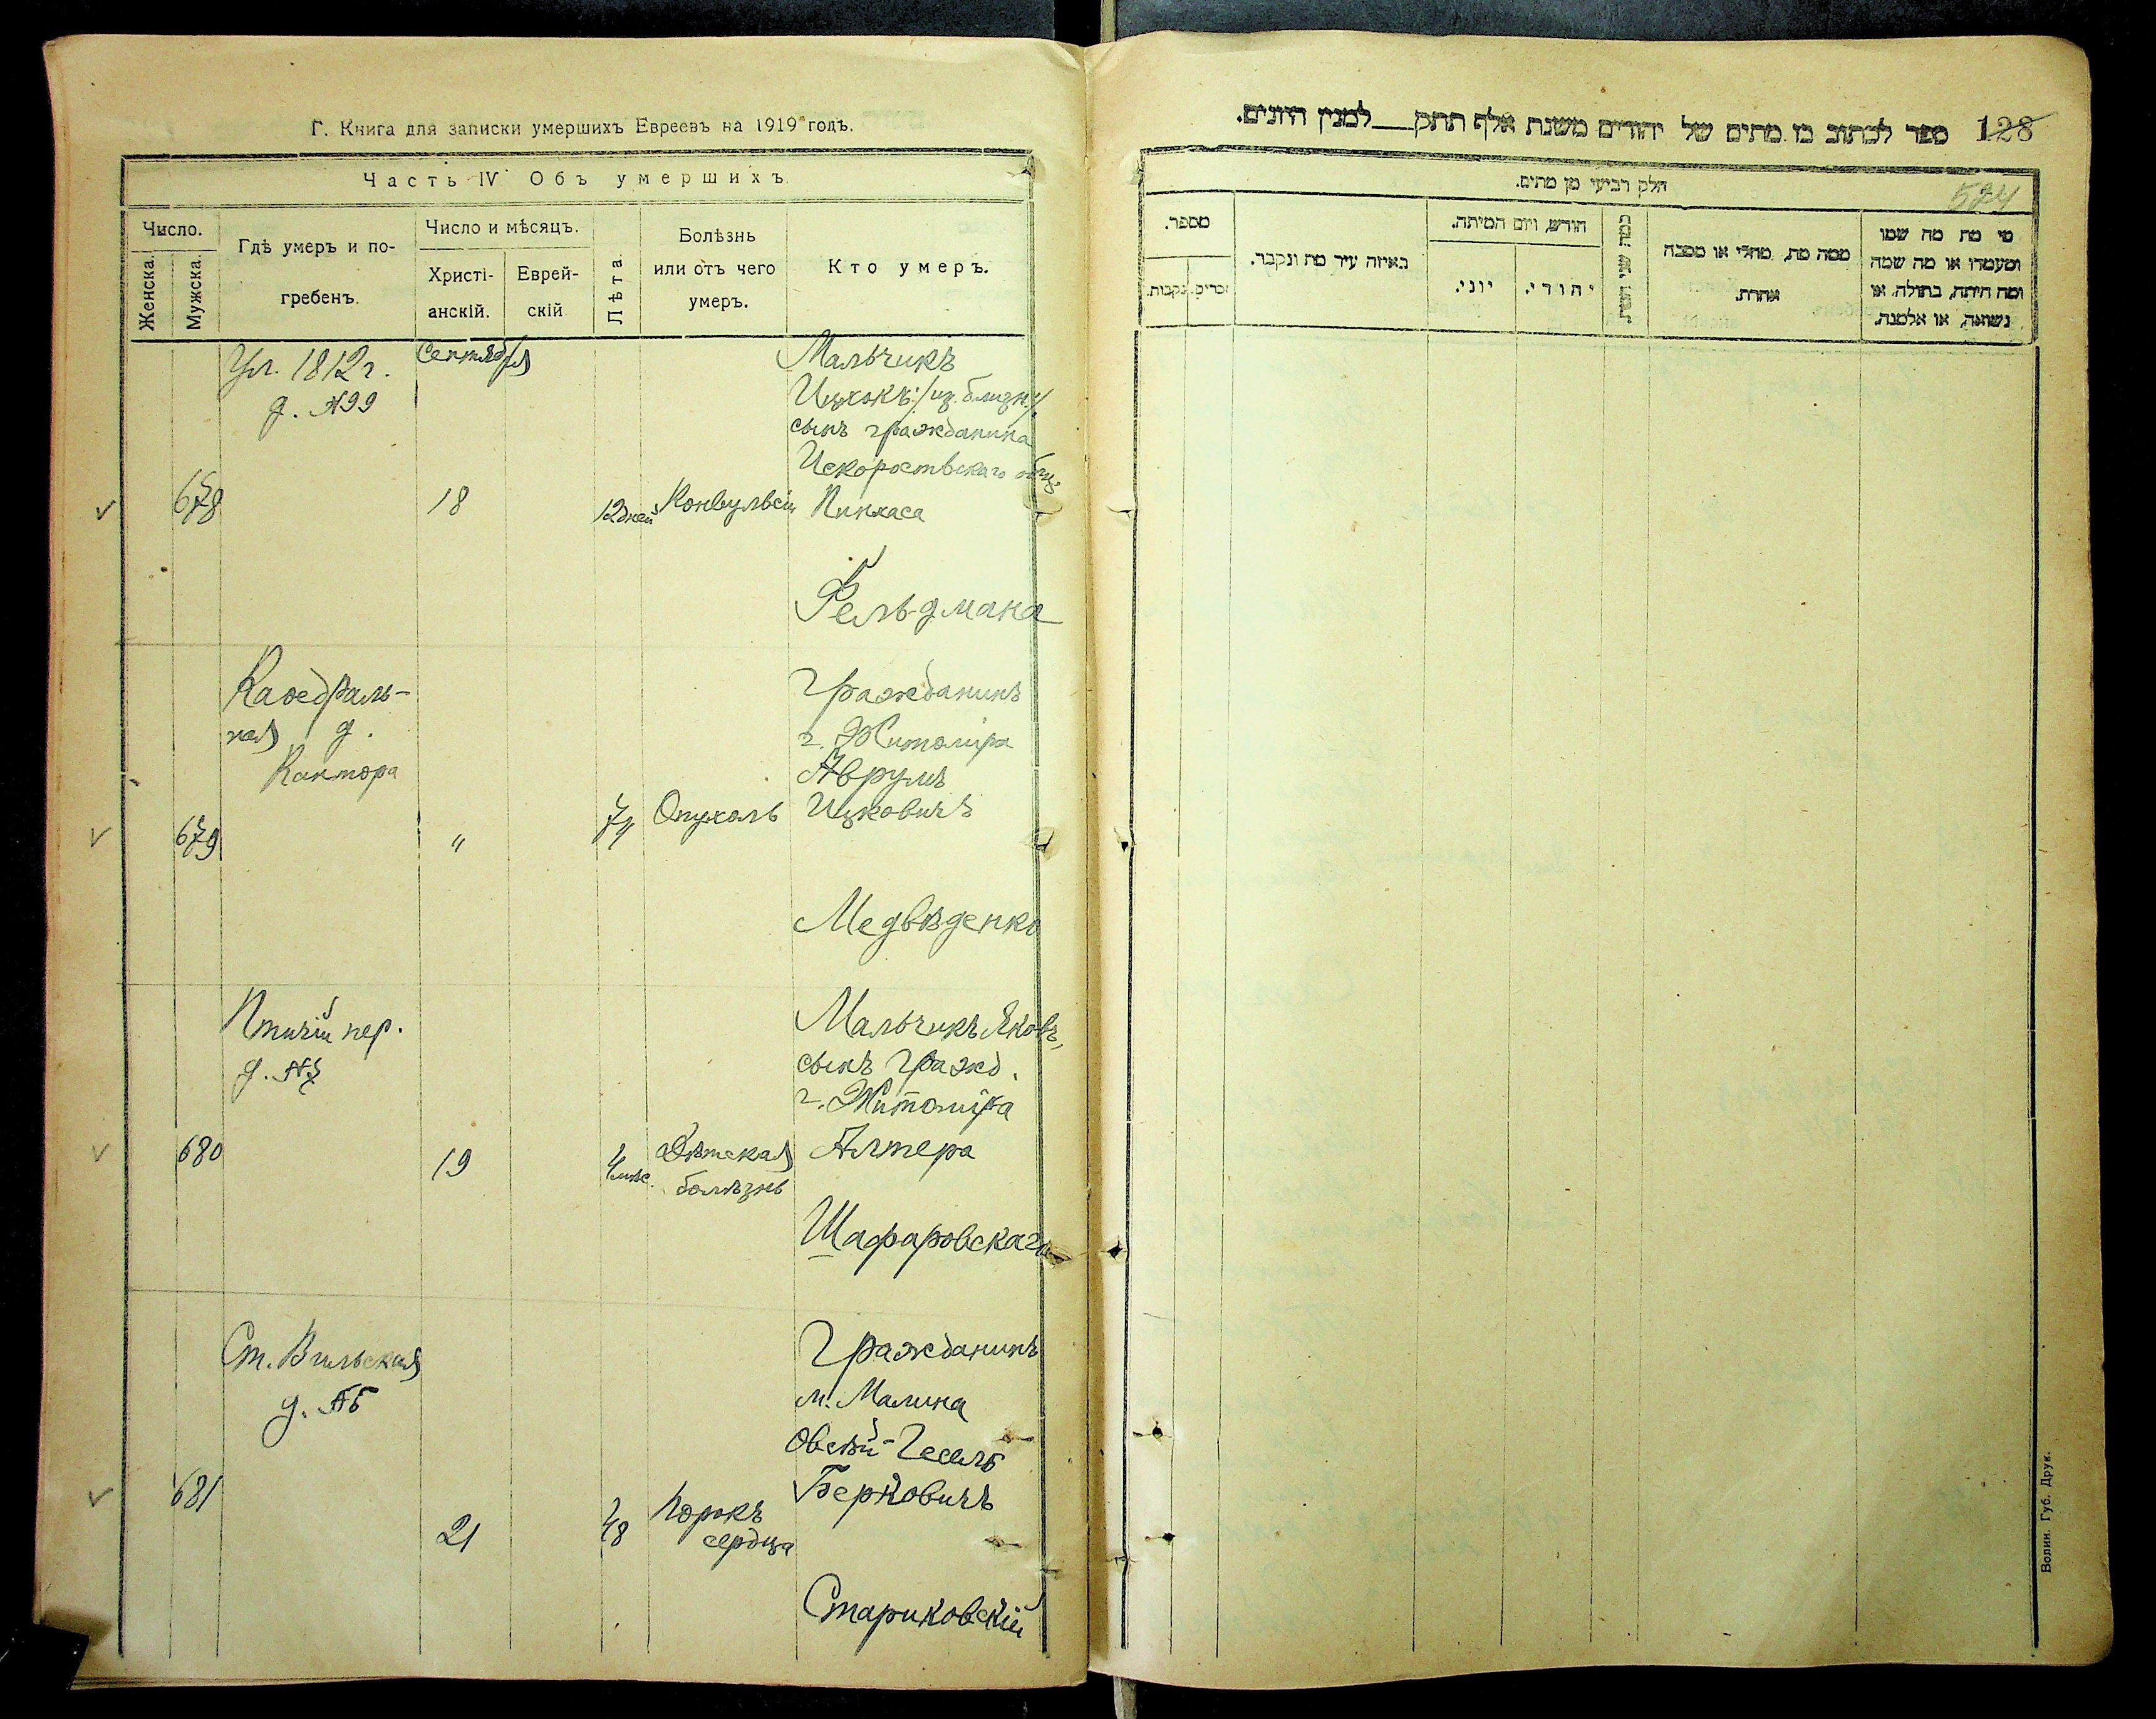 Г. Книга для записки умершихъ Евреевъ на 1919 годъ.
Часть IV Объ умершихъ
Число.
Женска.
Мужска.
Гдѣ умеръ и по-
гребенъ.
Число и мѣсяцъ.
Христі-
анскій.
Еврей-
скій
Лѣта
Болѣзнь
или отъ чего
умеръ.
Кто умеръ.
Ул. 1812 г.
д. №99
Сентября
678
18
12 дней
Конвульсіи
Мальчикъ
Ицхокъ /из близн./,
сынъ гражданина
Искоростьскаго общ.
Пинхаса
Фельдмана
Каѳедраль-
ная д.
Кантора
679
"
74
Опухоль
Гражданинъ
г. Житоміра
Аврумъ
Ицковичъ
Медвѣденко
Птичій пер.
д.
680
19
4 мѣс.
Дѣтская
болѣзнь
Мальчикъ Яковъ,
сынъ гражд.
г. Житоміра
Алтера
Шафаровскаго
Ст. Вильская
д. №5
681
21
48
Порокъ
сердца
Гражданинъ
м. Малина
Овсѣй-Гесель
Берковичъ
Стариковскій
ספר לכתוב בו מתים של יהודים משנת אלף תתק___למנין היונים.
128
524
חלק רביעי מן מתים.
מספר.
זכרים.
נקבות.
באיזה עיר מת ונקבר.
חודש, ויום המיתה.
יוני.
יהודי.
כמה שני חייו.
ממה מת, מחלי או מסבה
אחרת.
מי מת מה שמו
ומעמדו או מה שמה
ומה היתה, בתולה, או
נשואה, או אלמנה.
Волин. Губ. Друк.